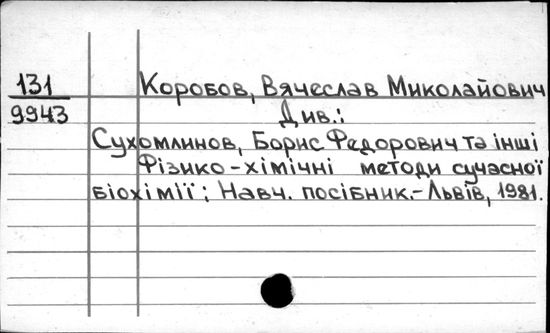 131 Коробов, Вячеслав Миколайович
9943 Див.:
Сухомлинов, Борис Федорович та інші
Фізико-хімічні методи сучасної
біохімії; Навч. посібник.-Львів, 1981.